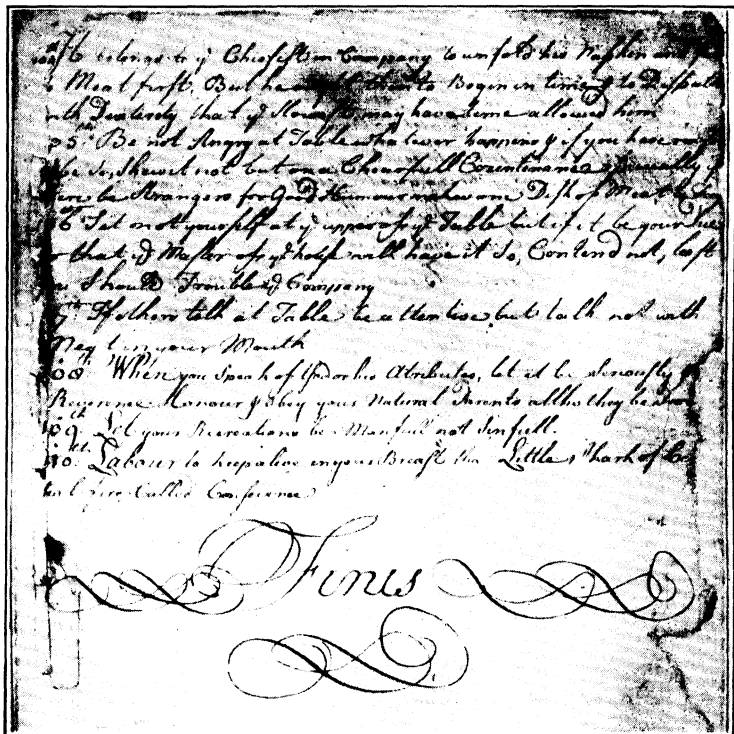 It belongs to yͤ Chiefest in Company to unfold his Napkin and
Meat first, But he ought then to Begin in time & to Dispatch
with Dexterity that yͤ Slowest may have time allowed him
5th Be not Angry at Table whatever happens & if you have
be so, Shew it not but on a Chearfull Countenance especially
there be Strangers for Good Humour makes one Dish of Meat
6th Set not yourself at yͤ upper of yͤ Table but if it be your Due
or that yͤ Master of yͤ house will have it So, Contend not, least
you Should Trouble yͤ Company
7th If others talk at Table be attentive but talk not with
Meat in your Mouth
108th When you Speak of God or his Atributes, let it be Seriously
Reverence, Honour & Obey your Natural Parents altho they be Poor
109th Let your Recreations be Manfull not Sinfull.
110th Labour to keep alive in your Breast that Little Spark of
tial fire Called Conscience
Finis